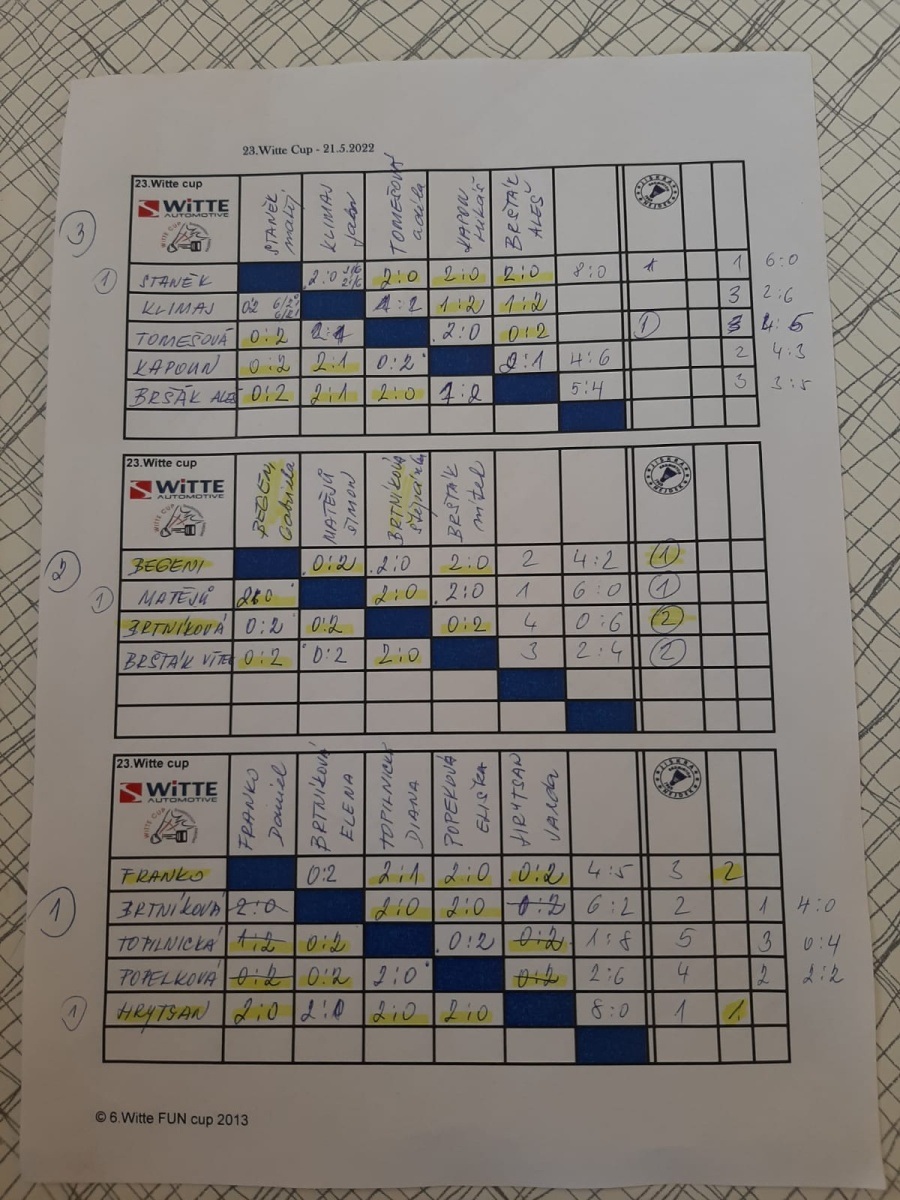 23.Witte Cup - 21.5.2022
23.Witte cup
WiTTE
AUTOMOTIVE
STANĚK matěj KLIMAJ TOMEŠOVÁ KAPOUN Lukáš BRŠŤÁK ALEŠ
3
1 STANĚK 2:0 2:0 2:0 2:0 8:0 1 6:0
KLIMAJ 0:2 1:2 1:2 1:2 3 2:6
TOMEŠOVÁ 0:2 2:1 2:0 0:2 1
KAPOUN 0:2 2:1 0:2 2:1 4:6 2 4:3
BRŠŤÁK ALEŠ 0:2 2:1 2:0 1:2 5:4 3 3:5
23.Witte cup
WiTTE
AUTOMOTIVE
BEGENI Gabriela MATĚJŮ ŠIMON BRTNÍKOVÁ BRŠŤÁK
2
BEGENI 0:2 2:0 2:0 2 4:2 1
1 MATĚJŮ 2:0 2:0 2:0 1 6:0 1
BRTNÍKOVÁ 0:2 0:2 0:2 4 0:6 2
BRŠŤÁK VÍTEK 0:2 0:2 2:0 3 2:4 2
23.Witte cup
WiTTE
AUTOMOTIVE
FRANKO Daniel BRTNÍKOVÁ ELENA TOPILNICKÁ DIANA POPELKOVÁ ELIŠKA HRYTSAN Vanda
FRANKO 0:2 2:1 2:0 0:2 4:5 3 2
1 BRTNÍKOVÁ 2:0 2:0 2:0 0:2 6:2 2 1 4:0
TOPILNICKÁ 1:2 0:2 0:2 0:2 1:8 5 3 0:4
POPELKOVÁ 0:2 0:2 2:0 0:2 2:6 4 2 2:2
1 HRYTSAN 2:0 2:0 2:0 2:0 8:0 1 1
© 6.Witte FUN cup 2013